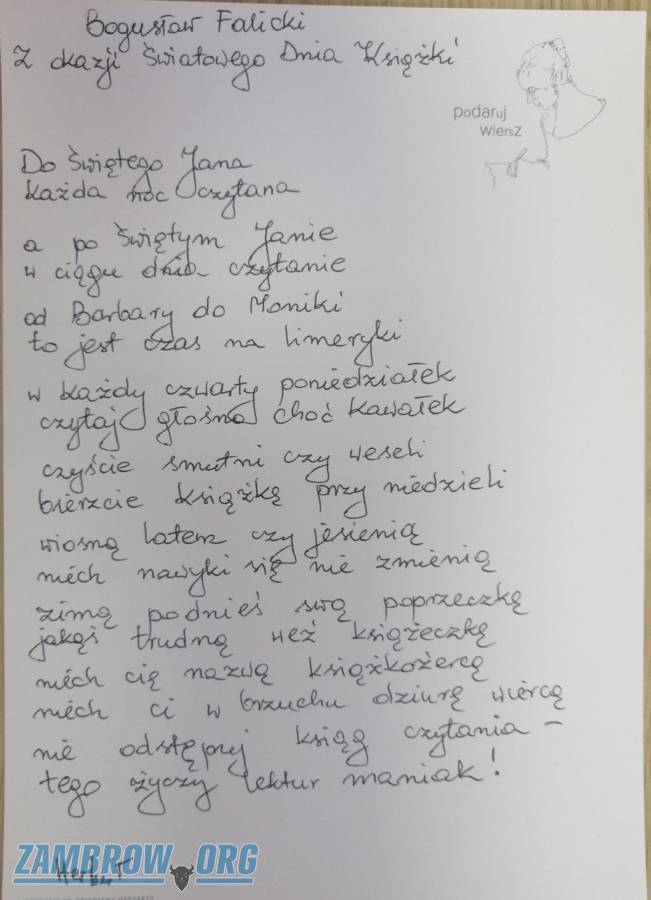 Bogusław Falicki
Z okazji Światowego Dnia Książki
podaruj
WiersZ
Do Świętego Jana
każda noc czytana
a po Świętym Janie
w ciągu dnia czytanie
od Barbary do Moniki
to jest czas na limeryki
w każdy czwarty poniedziałek
czytaj głośno choć kawałek
czyście smutni czy weseli
bierzcie książkę przy niedzieli
wiosną latem czy jesienią
niech nawyki się nie zmienią
zimą podnieś swą poprzeczkę
jakąś trudną weź książeczkę
niech cię nazwą książkożercą
niech ci w brzuchu dziurę wiercą
nie odstępuj ksiąg czytania –
tego życzy lektur maniak!
ZAMBROW.ORG
Herbert